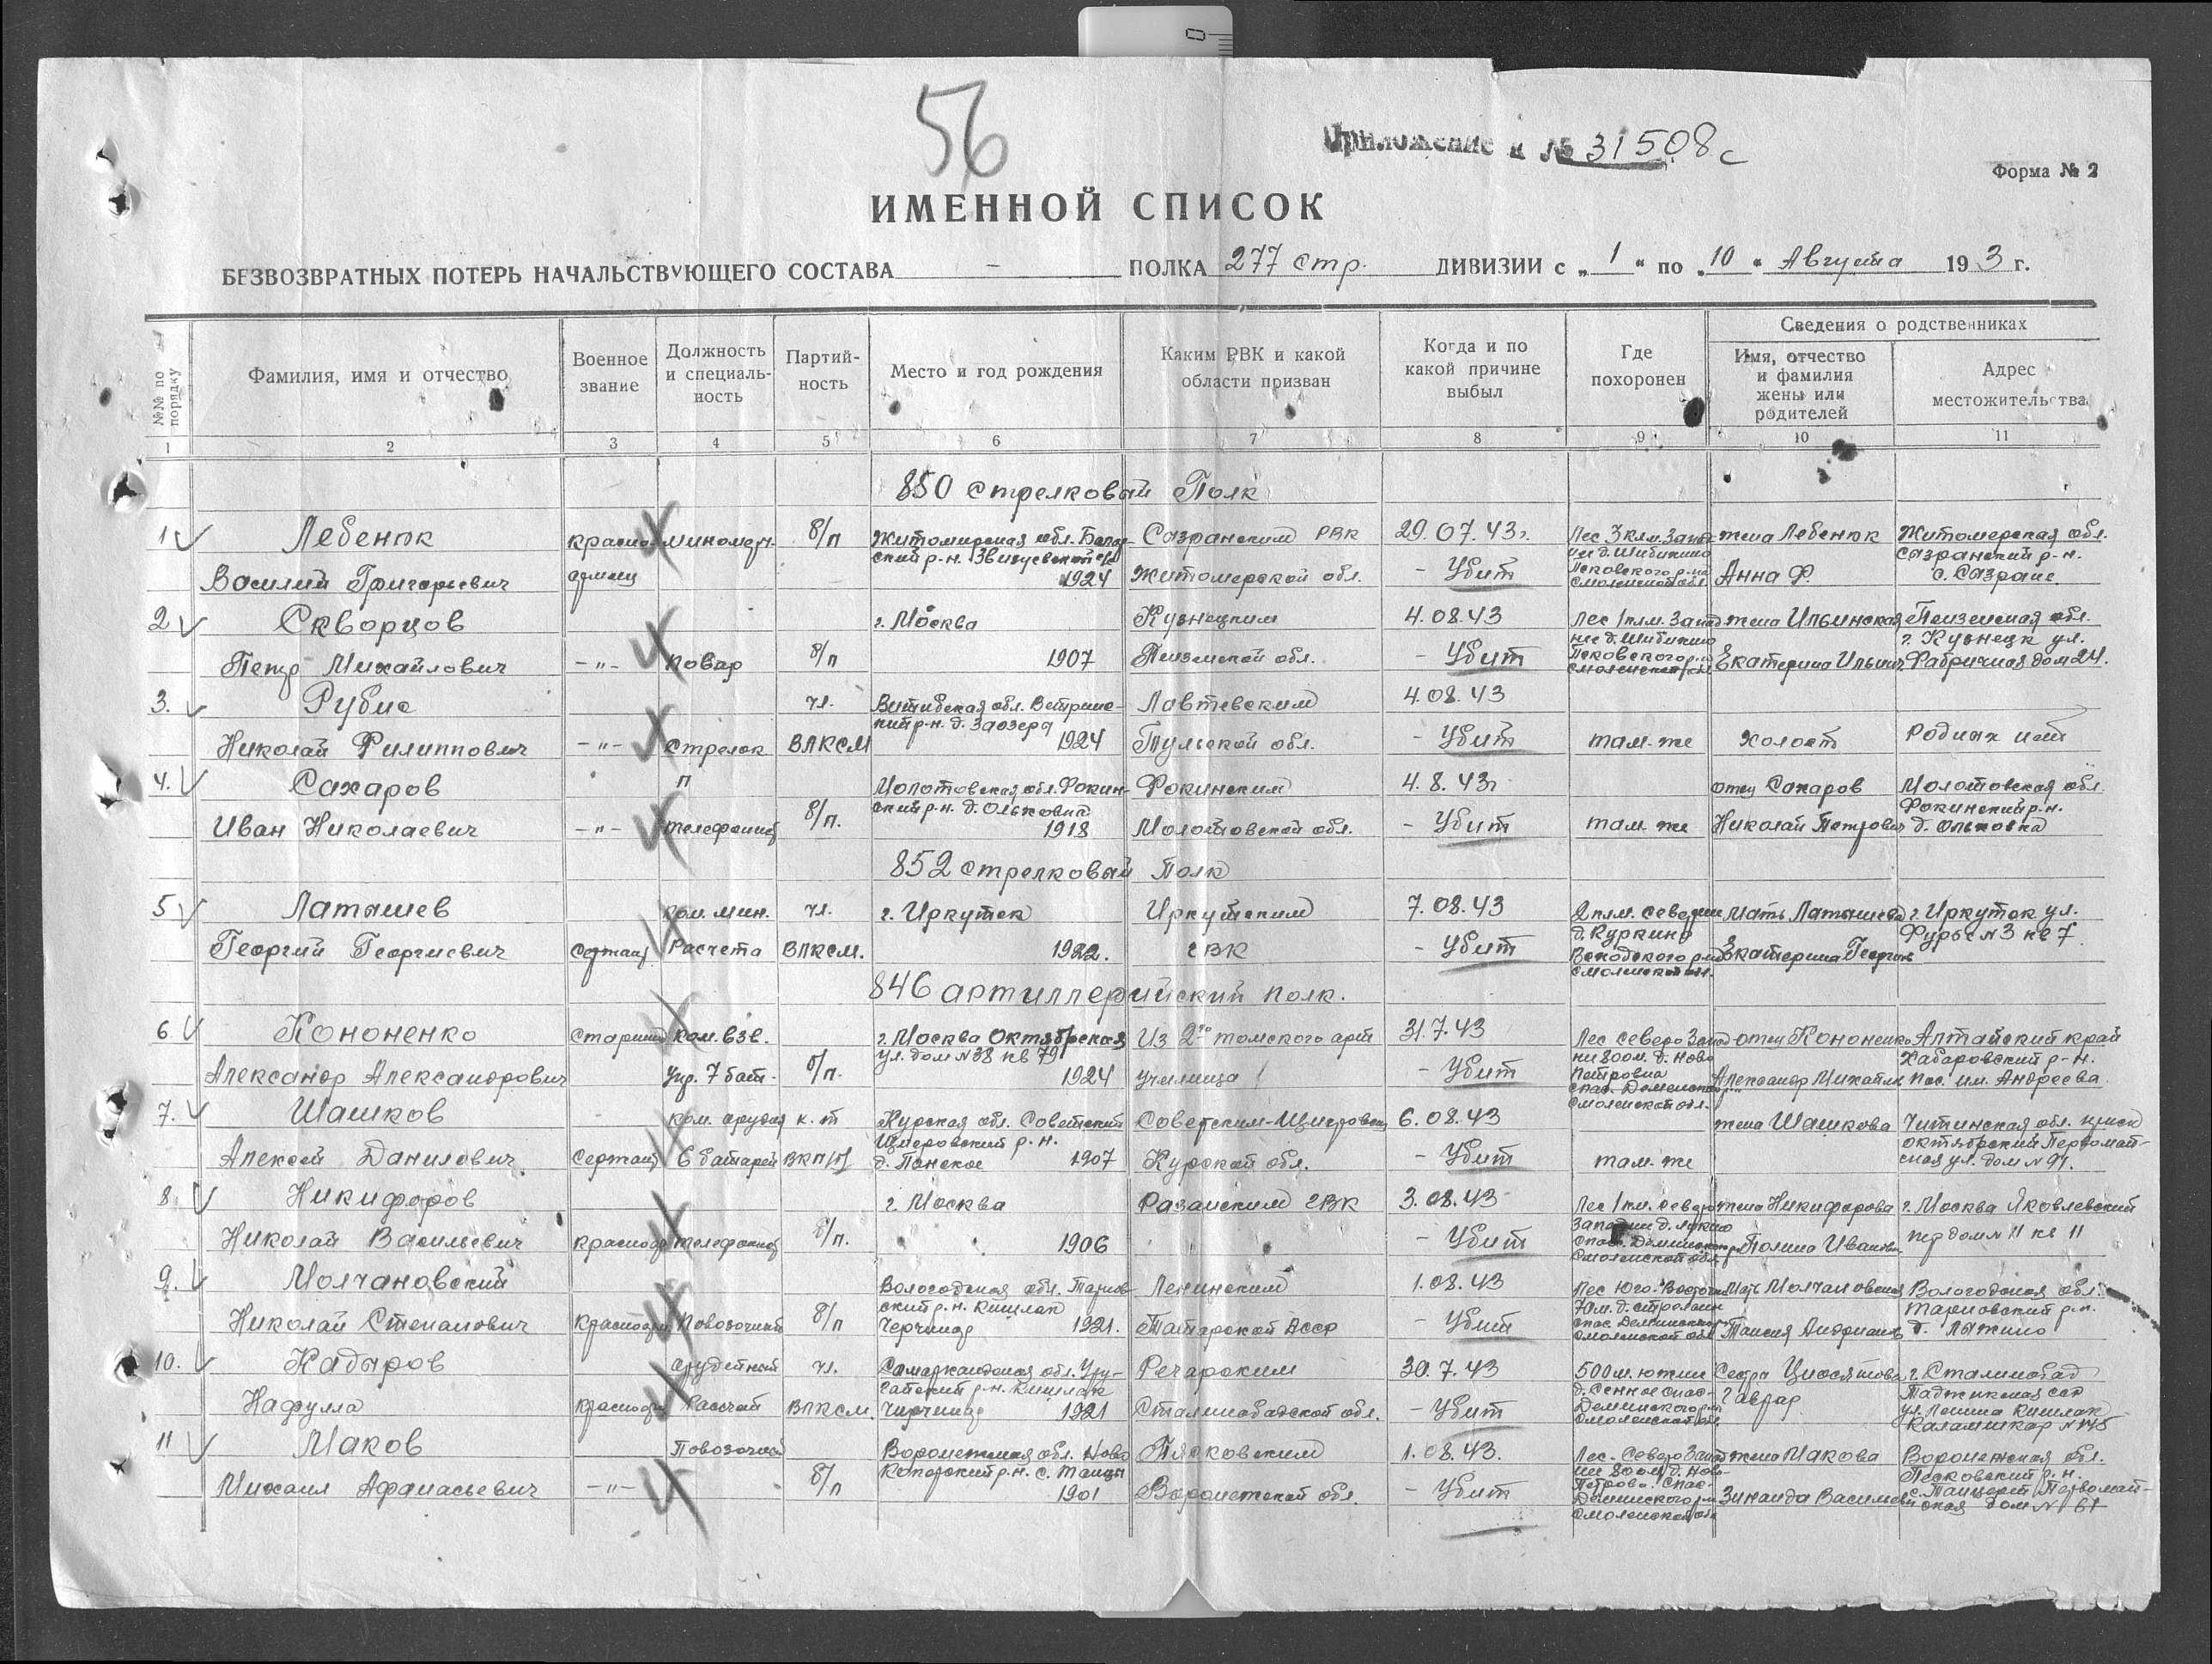 56
Приложение к № 31508с
Форма № 2
ИМЕННОЙ СПИСОК
БЕЗВОЗВРАТНЫХ ПОТЕРЬ НАЧАЛЬСТВУЮЩЕГО СОСТАВА - ПОЛКА 277 стр. ДИВИЗИИ с „ 1 “ по „ 10 “ Августа 19 3 г.
№№ по порядку
Фамилия, имя и отчество
Военное звание
Должность и специальность
Партийность
Место и год рождения
Каким РВК и какой области призван
Когда и по какой причине выбыл
Где похоронен
Сведения о родственниках
Имя, отчество и фамилия жены или родителей
Адрес местожительства
1 2 3 4 5 6 7 8 9 10 11
850 Стрелковый Полк
1 Лебенюк красно- миномет. б/п Житомирская обл. Сазранским РВК 29.07.43г. Лес 3 клм. Запад жена Лебенюк Житомерская обл.
ский р-н. нее д. Шибикино Сазранский р-н.
Василий Григорьевич армеец 1924 Житомерской обл. - Убит Смоленской обл. Анна Ф. с. Сазране.
2 Скворцов г. Москва Кузнецким 4.08.43 Лес 1 клм. Запад жена Ильинская Пензенская обл.
нее д. Шибикино г. Кузнецк ул.
Петр Михайлович -"- повар б/п 1907 Пензенской обл. - Убит Смоленской обл. Екатерина Ильинич. Фабричная дом 24.
3. Рубис чл. Витибская обл. Ветринс- Лавтевским 4.08.43
кий р-н. д. Заозера
Николай Филиппович -"- Стрелок ВЛКСМ 1924 Тульской обл. - Убит там-же холост Родных нет
4. Сахаров Молотовская обл. Фокин- Фокинским 4.8.43г отец Сахаров Молотовская обл.
ский р-н. д. Ольховка Фокинский р-н.
Иван Николаевич -"- телефонист б/п. 1918 Молотовской обл. - Убит там-же Николай Петрович д. Ольховка
852 стрелковый Полк
5 Латышев ком. мин. чл. г. Иркутск Иркутским 7.08.43 2 клм. севернее Мать Латышева г. Иркутск ул.
д. Куркино Фурье N 3 кв 7.
Георгий Георгиевич Сержант Расчета ВЛКСМ. 1922. ГВК - Убит Всходского р-на Екатерина Георгие
Смоленской обл.
846 артиллерийский полк.
6. Кононенко Старшина Ком. взв. г. Москва Октябрская Из 2го томского арт Лес северо Запад отец Кононенко Алтайский край
31.7.43 ул. дом N 38 кв 79 нее 800м. д. Ново Хабаровский р-н.
Александр Александрович Упр. 7 бат. б/п. 1924 училища - Убит Петровка Александр Михайл. пос. им. Андреева.
Смоленской обл.
7. Шашков ком. орудия к-т Курская обл. Советский Советским-Щигровск 6.08.43 жена Шашкова Читинская обл. прииск
Щигровский р-н. октябрский Первомай-
Алексей Данилович Сержант 6 батареи ВКП/б/ д. Панское 1907 Курской обл. - Убит там-же ская ул. дом N 97.
8 Никифоров г. Москва Разанским ГВК 3.08.43 Лес 1 км. северо жена Никифорова г. Москва Яковлевский
Николай Васильевич красноар телефонист б/п. 1906 - Убит Смоленской обл. Полина Иванов. пер дом N 11 кв 11
9. Молчановский Вологодская обл. Тарнов- Ленинским 1.08.43 Лес Юго-Восточн Мать Молчановская Вологодская обл.
ский р-н. кишлак Тарновский р-н.
Николай Степанович Красноар Повозочный б/п 1921. Татарской АССР - Убит Смоленской обл. Таисия Андрианов д.
10. Кадыров орудейный чл. Самаркандская обл. Речарским 30.7.43 500м. южнее Сестра г. Сталинобад
р-н. кишлак д. Сенное Спас- Таджикская ССР
Нафулла красноар Рассчет ВЛКСМ. 1921 Сталинобадской обл. - Убит Деминского р-н ул. Ленина кишлак
Смоленской обл.
11 Маков Повозочный Воронежская обл. Ново Песковским 1.08.43. Лес. Северо Запад жена Макова Воронежская обл.
р-н. с. Танцы нее 800м д. Ново- Песковский р-н.
Михаил Афанасьевич -"- б/п 1901 Воронежской обл. - Убит Петровка Спас- Зинаида Васильевн Первомай-
Деминского р-н ская дом N 61
Смоленской обл